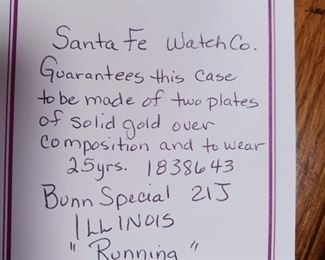 Santa Fe Watch Co.
Guarantees this case
to be made of two plates
of solid gold over
composition and to wear
25yrs. 1838643
Bunn Special 21J
ILLINOIS
"Running"